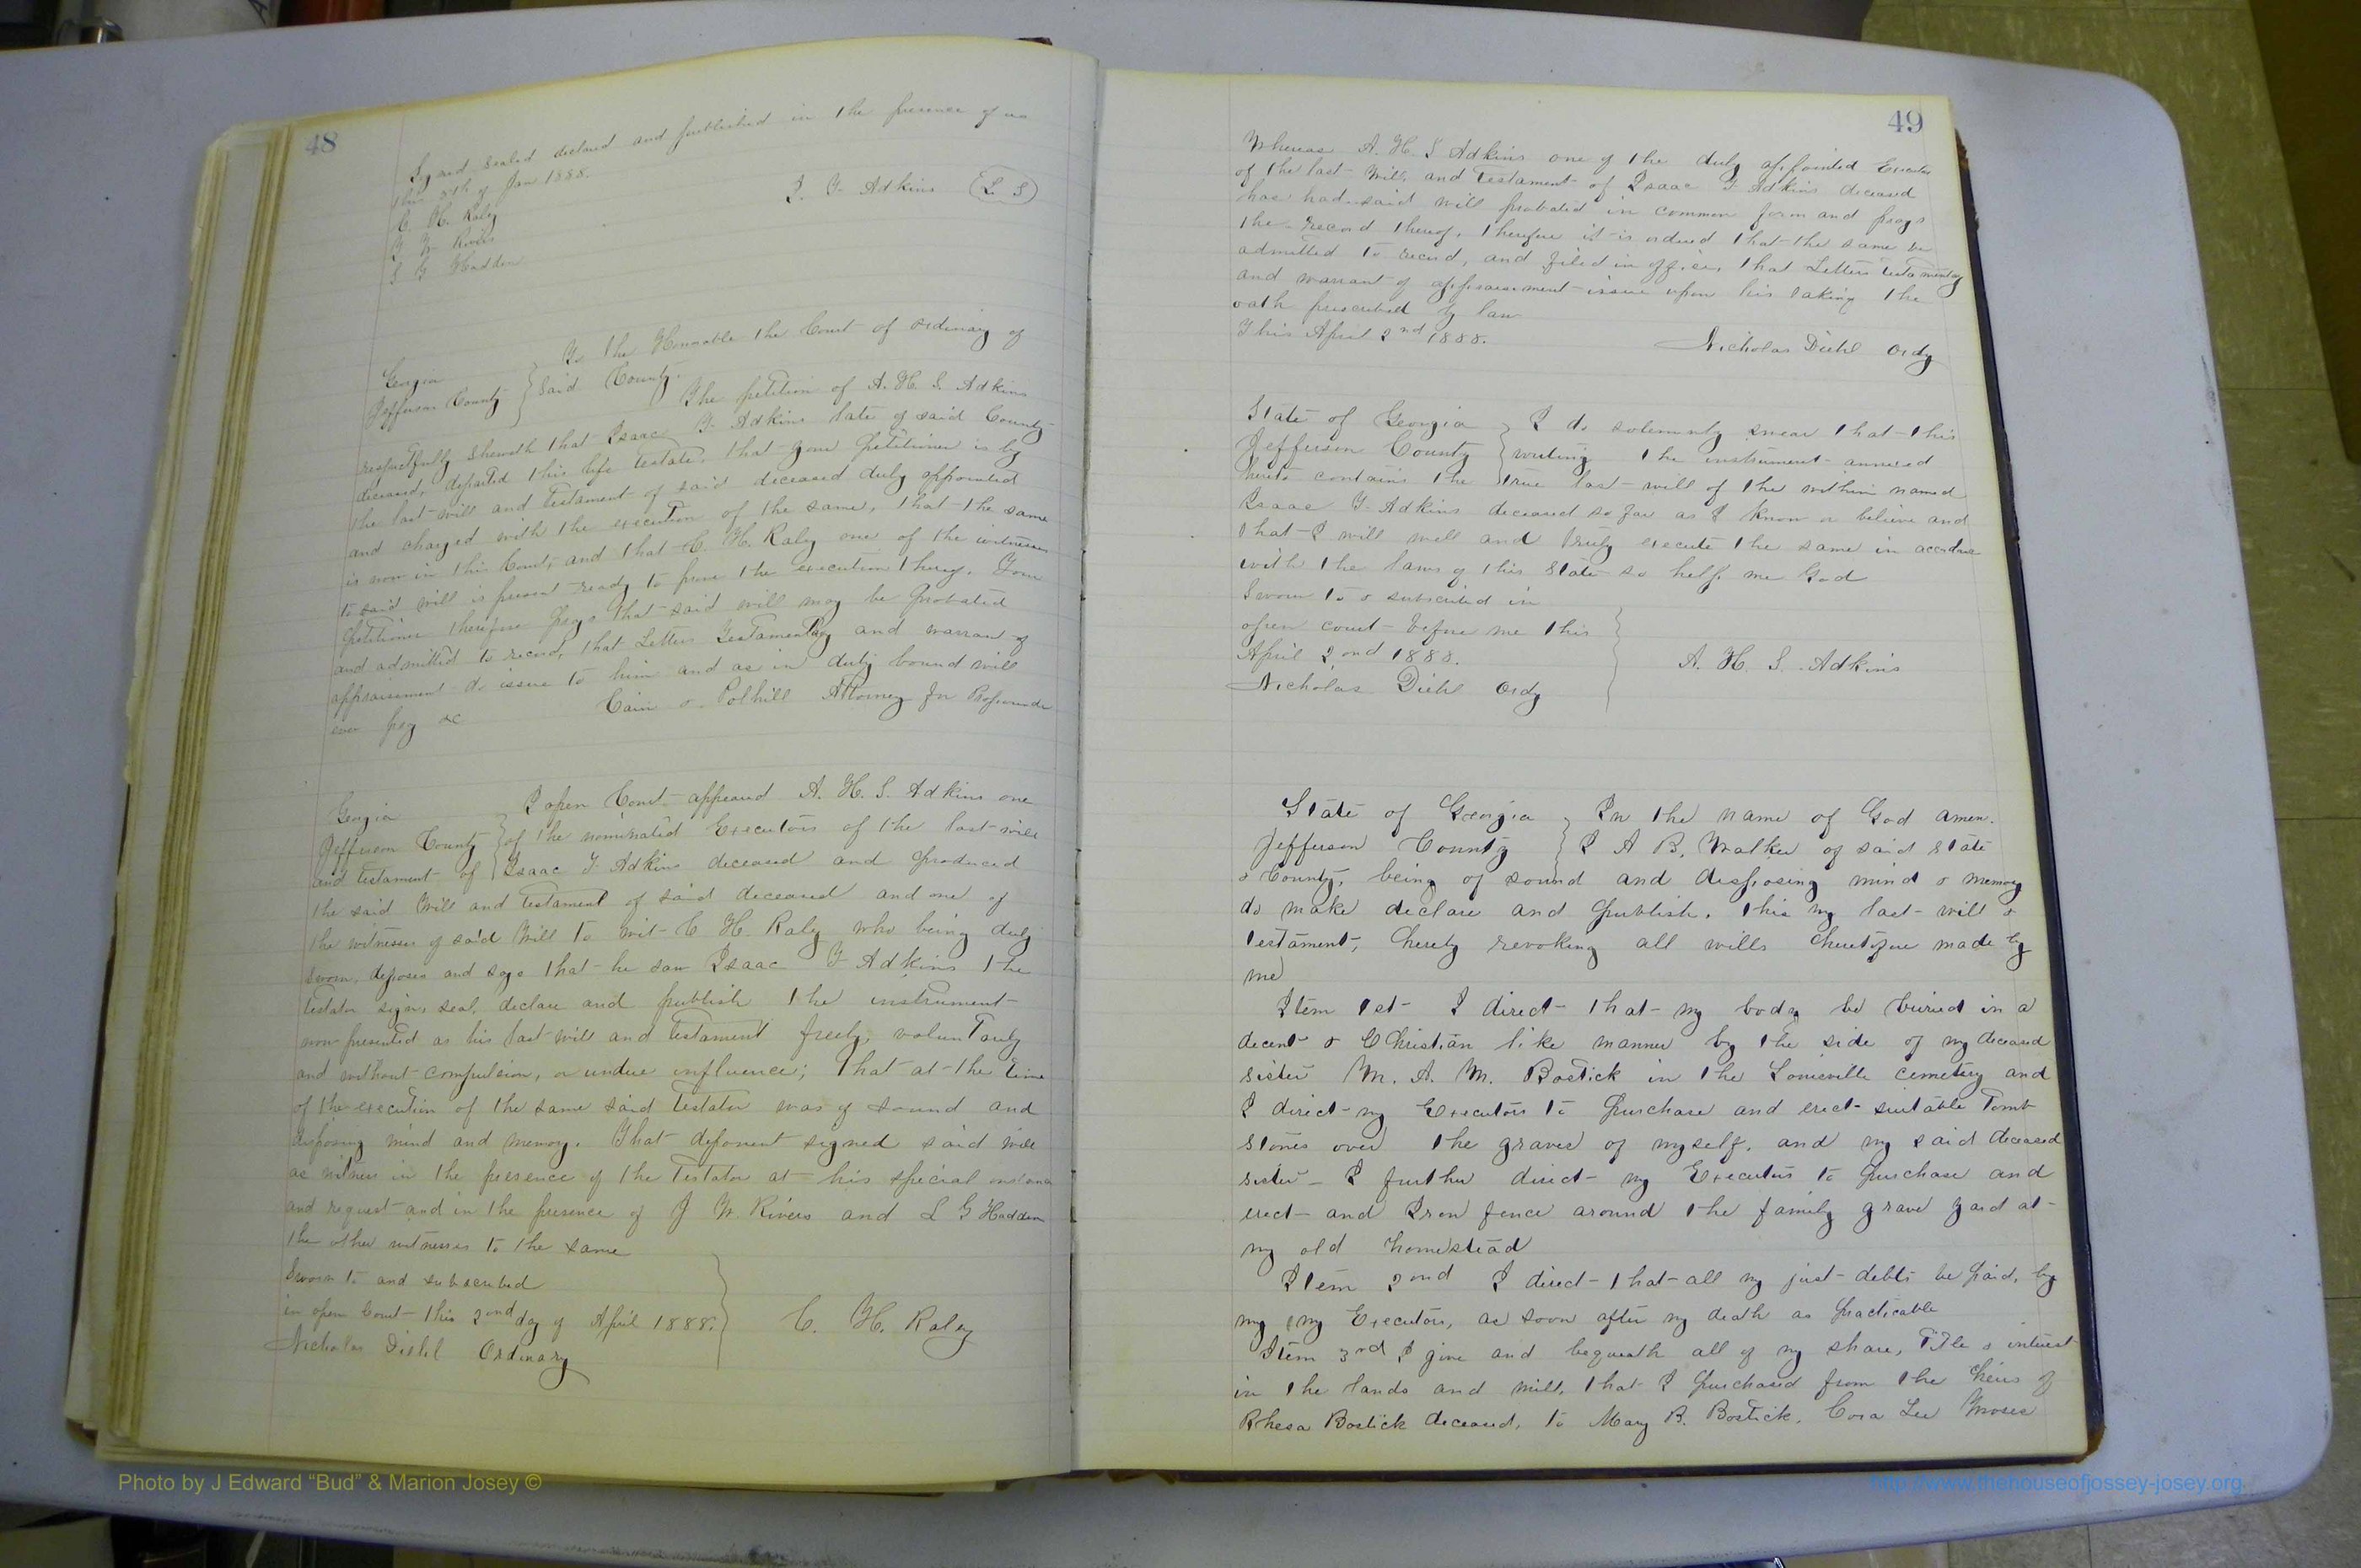 48
Signed sealed declared and published in the presence of us
this 5th of Jan 1888.
I. F. Adkins (L S)
C. H. Raley
J W Rivers
L G Hadden
Georgia
Jefferson County
To the Honorable the Court of ordinary of
said County.
The petition of A. H. S. Adkins
respectfully sheweth that Isaac F Adkins late of said County
deceased, departed this life testate, that your petitioner is by
the last will and testament of said deceased duly appointed
and charged with the execution of the same, that the same
is now in this Court, and that C. H. Raley one of the witnesses
to said will is present ready to prove the execution thereof. Your
petitioner therefore prays that said will may be probated
and admitted to record, that Letters Testamentary and warrant of
appraisement do issue to him and as in duty bound will
ever pray &c
Cain & Polhill Attorney for Propounder
Georgia
Jefferson County
I open Court appeared A. H. S. Adkins one
of the nominated Executors of the last will
and testament of Isaac F Adkins deceased and produced
the said Will and testament of said deceased and one of
the witnesses of said Will to wit C H. Raley who being duly
sworn, deposes and says that he saw Isaac F Adkins the
testator sign, seal, declare and publish the instrument
now presented as his last will and testament freely, voluntarily
and without compulsion, or undue influence; that at the time
of the execution of the same said testator was of sound and
disposing mind and memory. That deponent signed said will
as witness in the presence of the testator at his special instance
and request and in the presence of J W. Rivers and L G Hadden
the other witnesses to the same
Sworn to and subscribed
in open Court this 2ond day of April 1888.
Nicholas Diehl Ordinary
C. H. Raley
49
Whereas A. H. S Adkins one of the duly appointed Executor
of the last Will, and testament of Isaac F Adkins deceased
has had said will probated in common form and prays
the record thereof, therefore it is ordered that the same be
admitted to record, and filed in office, that Letters testamentary
and warrant of appraisement issue upon his taking the
oath prescribed by law
This April 2nd 1888.
Nicholas Diehl Ordy
State of Georgia
Jefferson County
I do solemnly swear that this
writing the instrument annexed
hereto contains the true last will of the within named
Isaac F Adkins deceased so far as I know or believe and
that I will well and truly execute the same in accordance
with the laws of this State so help me God
Sworn to & subscribed in
open court before me this
April 2ond 1888.
Nicholas Diehl Ordy
A. H. S. Adkins
State of Georgia
Jefferson County
In the name of God amen.
I A B. Walker of said State
& County, being of sound and disposing mind & memory
do make declare and publish, this my last will &
testament, hereby revoking all wills heretofore made by
me
Item 1st I direct that my body be buried in a
decent & Christian like manner by the side of my deceased
sister M. A. M. Bostick in the Louisville cemetery and
I direct my Executors to purchase and erect suitable Tomb
stones over the graves of myself, and my said deceased
sister I further direct my Executors to purchase and
erect and Iron fence around the family grave yard at
my old homestead
Item 2ond I direct that all my just debts be paid, by
my my Executors, as soon after my death as practicable
Item 3rd I give and bequeath all of my share, Title & interest
in the lands and mill, that I purchased from the heirs of
Rhesa Bostick deceased, to Mary B. Bostick, Cora Lee Moses
Photo by J Edward “Bud” & Marion Josey ©
http://www.thehouseofjossey-josey.org